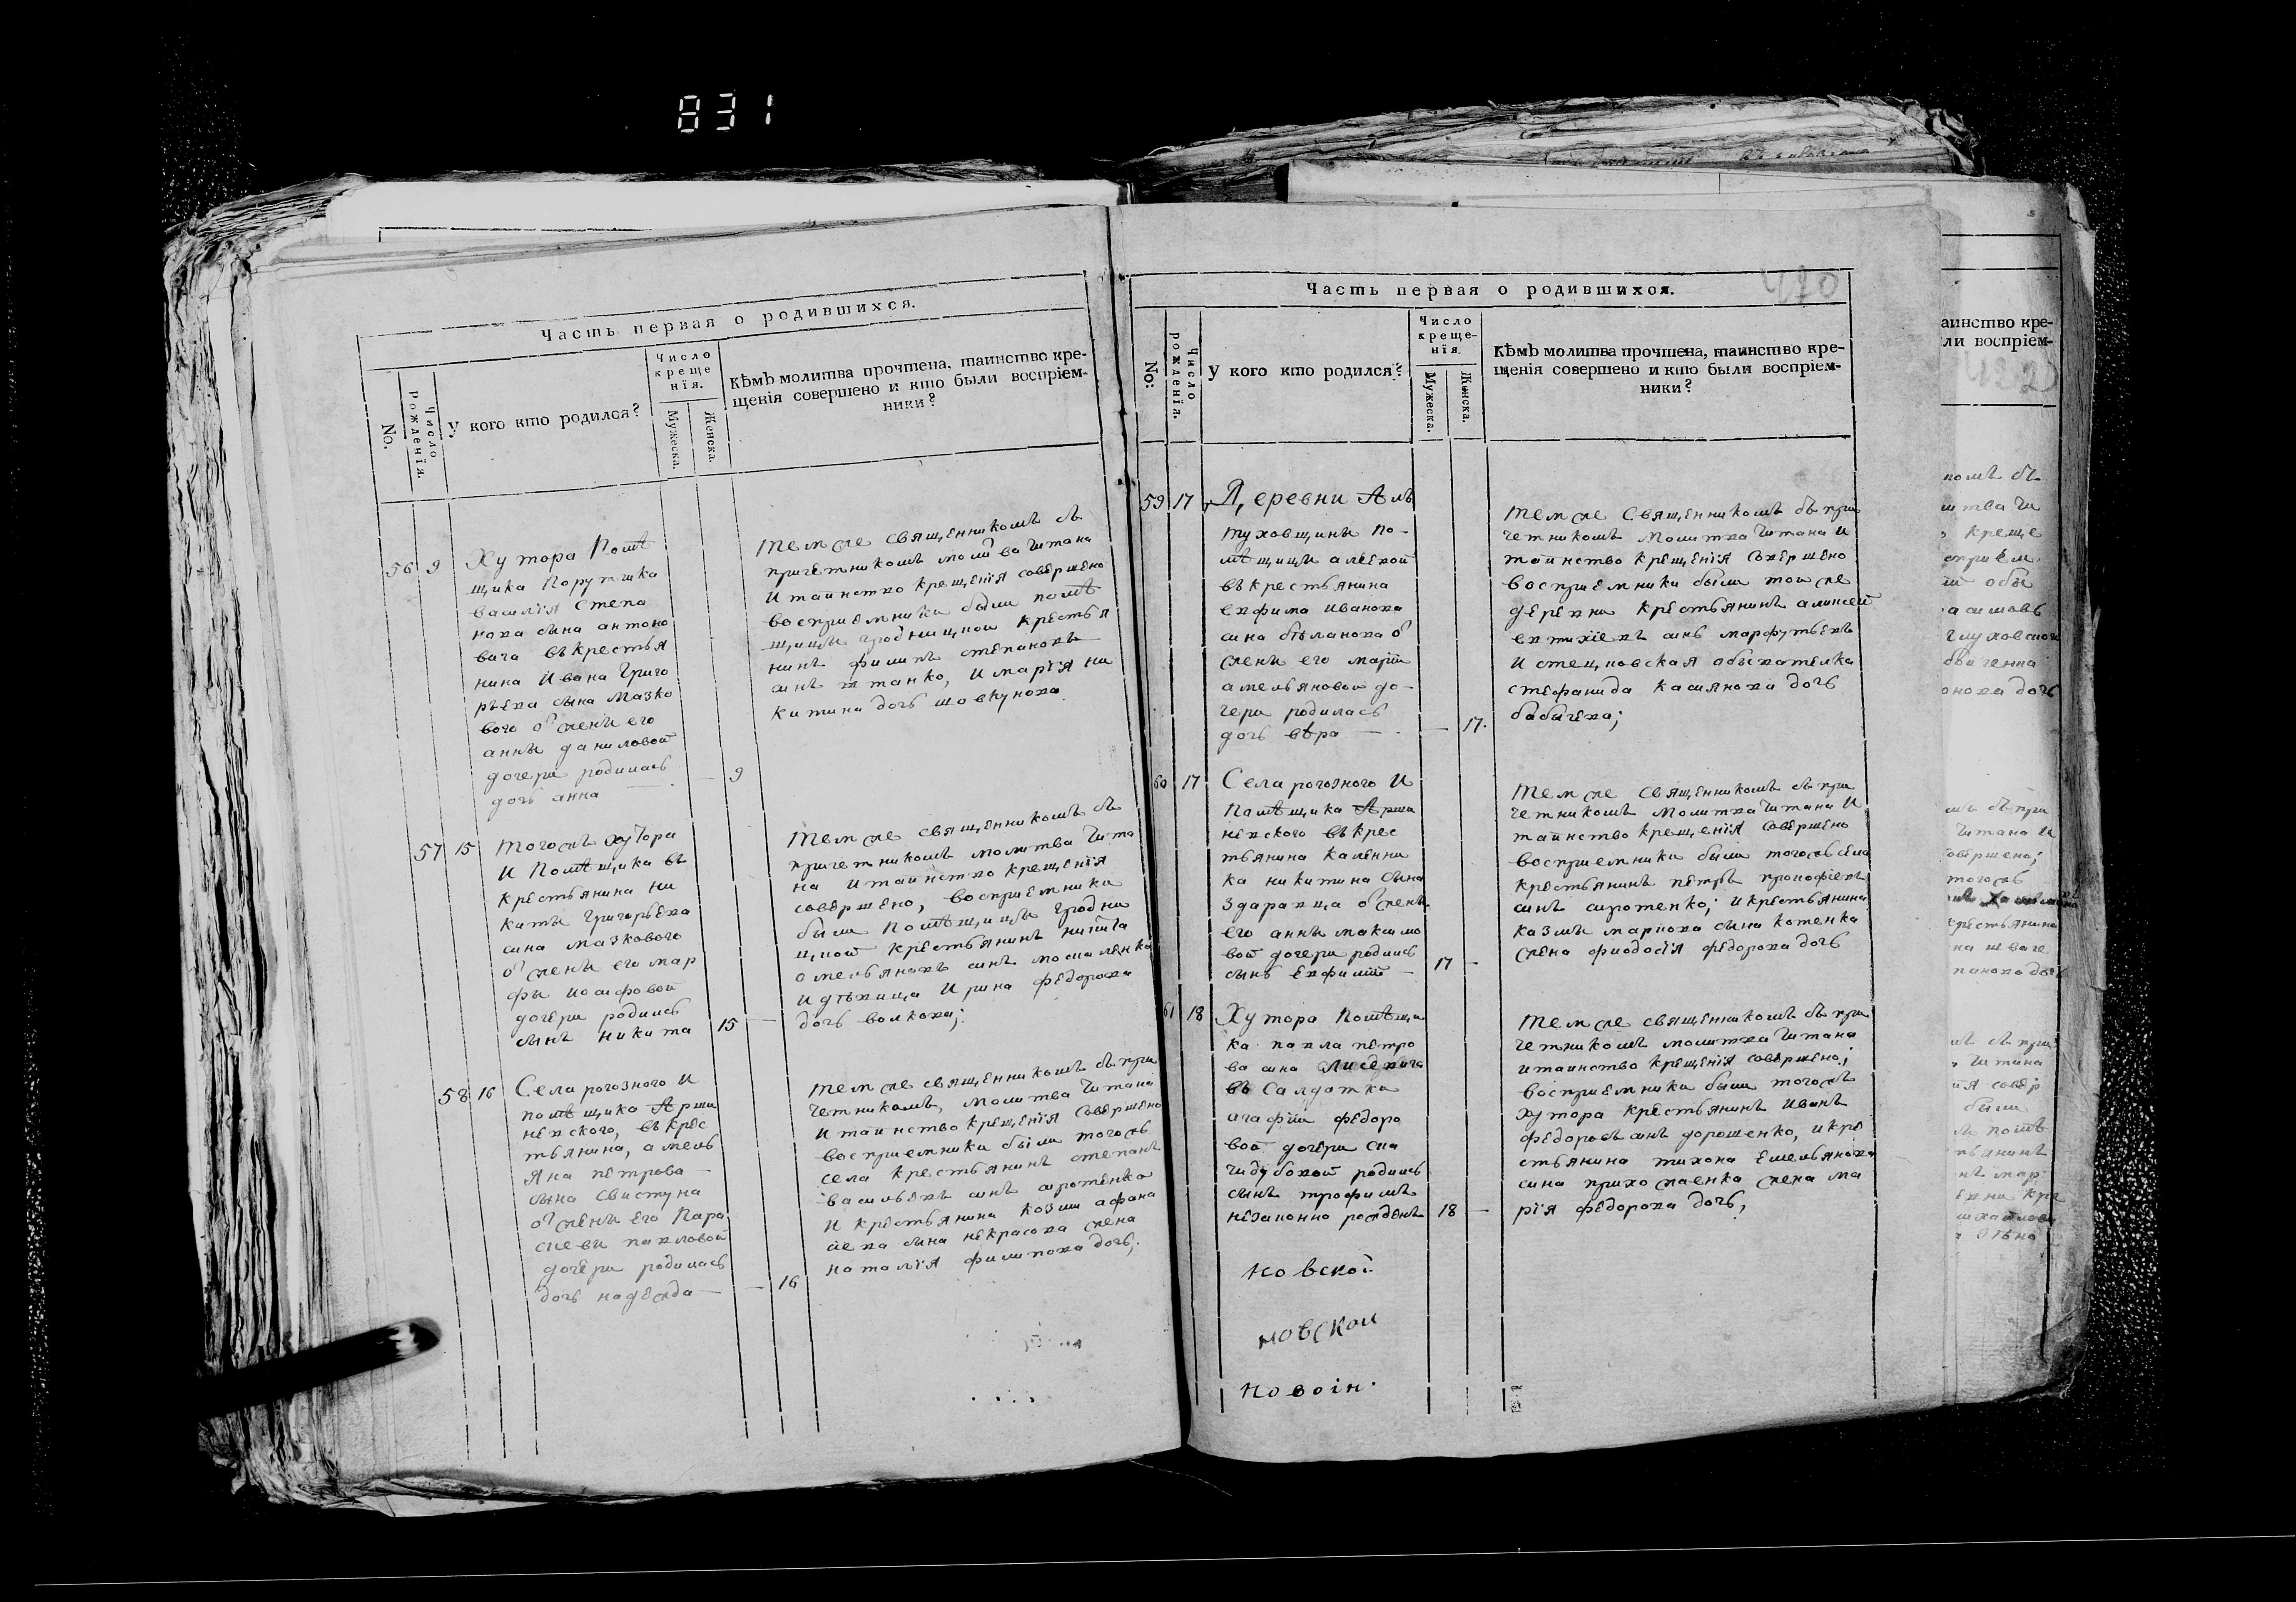 831
Часть первая о родившихся.
No.
Число рожденія.
У кого кто родился?
Число
креще
нія.
Мужеска.
Женска.
Кѣмъ молитва прочтена, таинство кре-
щенія совершено и кто были воспріем-
ники?
56 9
Хутора Помѣ
щика Порутчика
василія Степа
нова сына антоно
вича въ крестья
нина Ивана Григо
рьева сына Мазко
вого отъ жены его
анны даниловой
дочери родилась
дочь анна
— 9
темже священникомъ съ
причетникомъ молитва читана
И таинство крещенія совершено
восприемники были помѣ
щицы гродницкой крестья
нинъ филипъ степановъ
сынъ штанко, И марія ни
китина дочь шовкунова
57 15
тогожъ хутора
И Помѣщика въ
крестьянина ни
киты григорьева
сина мазкового
отъ жены его мар
фы иосифовой
дочери родилсь
сынъ никита
15 —
темже священникомъ съ
причетникомъ молитва чита
на И таинство крещенія
совершено, восприемники
были Помѣщицы гродни
цкой крестьянинъ никита
омельяновъ синъ москаленко
И дѣвица Ирина федорова
дочь волкова;
58 16
Села рогозного И
помѣщика Арша
невского, въ крес
тьянина, амель
яна петрова
сына свистуна
отъ жены его Пара
скеви павловой
дочери родилась
дочь надежда —
— 16
темже священникомъ съ при
четникомъ, молитва читана
И таинство крещенія совершено
восприемники были тогожъ
села крестьянинъ степанъ
васильевъ синъ сиротенко
И крестьянина козми афана
сиева сына некрасова жена
наталія филипова дочь;
Часть первая о родившихся.
420
No:
Число рожденія.
У кого кто родился?
Число
креще-
нія.
Мужеска.
Женска.
Кѣмъ молитва прочтена, таинство кре-
щенія совершено и кто были воспріем-
ники?
59 17
Деревни Ал
туховщины по-
мѣщицы
въ крестьянина
евфима Иванова
сина биланова отъ
жены его марии
амельяновой до-
чери родилась
дочь вѣра —
— 17.
темже Священникомъ съ при
четникомъ Молитва читана И
таинство крещенія совершено
восприемники были тойже
деревни крестьянинъ аликсей
евтихіевъ синъ
И обывателка
стефанида касянова дочь
бабичева;
60 17
Села рогозного И
Помѣщика Арша
невского въ крес
тьянина каленни
ка никитина сына
отъ жены
его анны максимо
вой дочери родилсь
сынъ Евфимій —
17 -
темже священникомъ съ при
четникомъ молитва читана И
таинство крещенія совершено
восприемники были тогожъ села
крестьянинъ петръ прокофіевъ
синъ сиротенко; И крестьянина
казмы маркова сына котенка
жена феодосія федорова дочь
61 18
Хутора Помѣщи
ка павла петро
ва сина
въ Салдатки
агафіи федоро
вой дочери
родилсь
сынъ трофимъ
незаконно рожденъ
18 —
темже священникомъ съ при
четникомъ молитва читана
и таинство крещенія совершено;
восприемники были тогожъ
хутора крестьянинъ Иванъ
федоровъ синъ дорошенко, И кре
стьянина тихона Емельянова
сина приходченка жена ма
рія федорова дочь;
новской
новской
аинство кре-
ли воспріем-